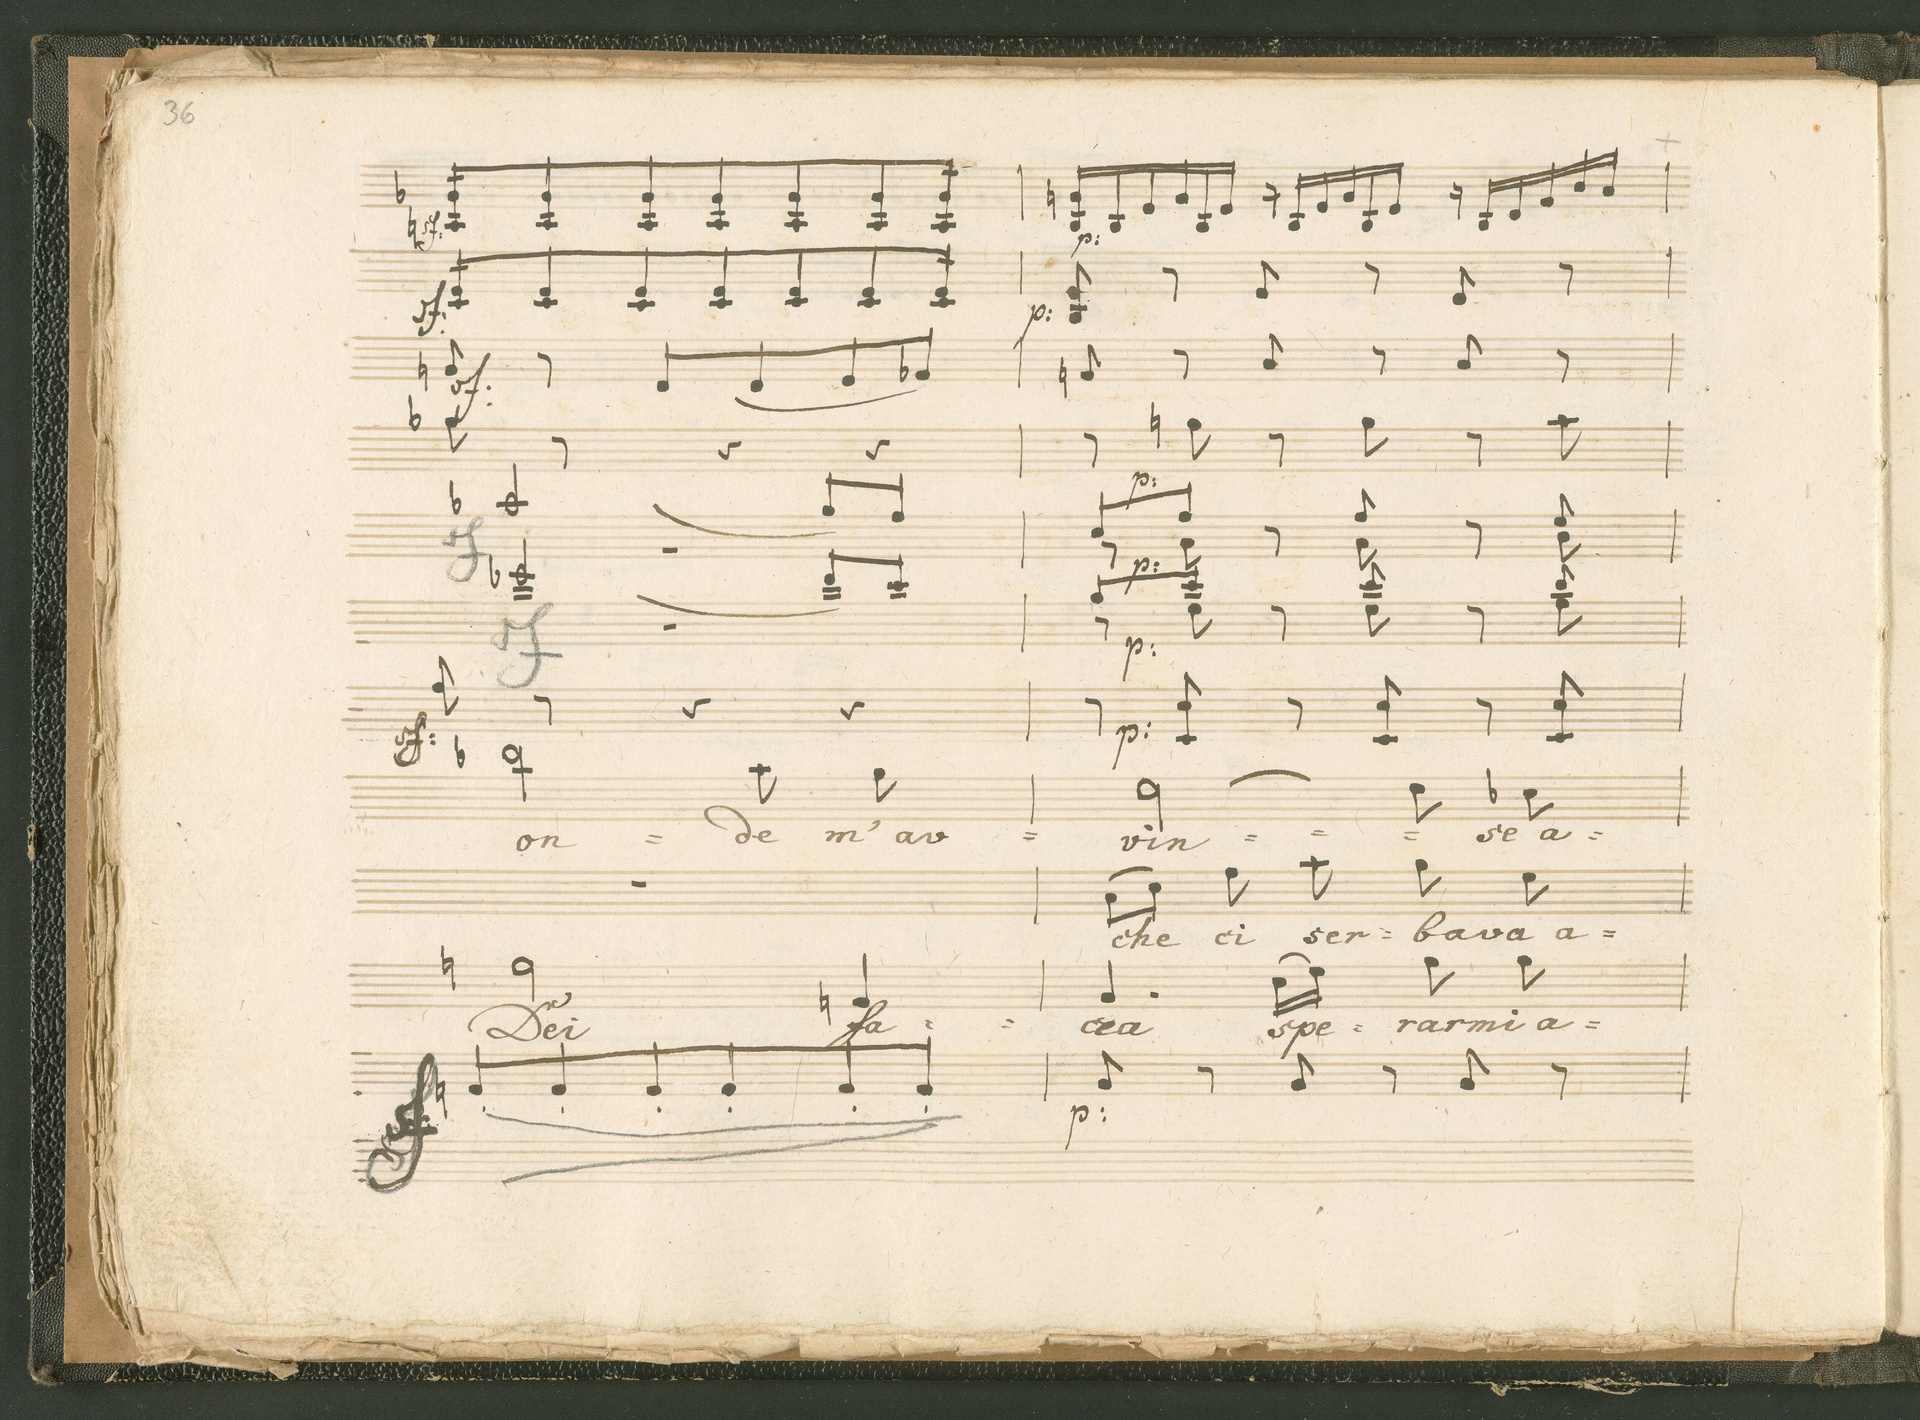 36
sf:
p:
sf:
p:
sf:
p:
sf
p:
sf
p:
sf:
p:
on = de m' av = vin = = = se a =
che ci ser = bava a =
Dei fa = = cea spe = rarmi a =
sf:
p: